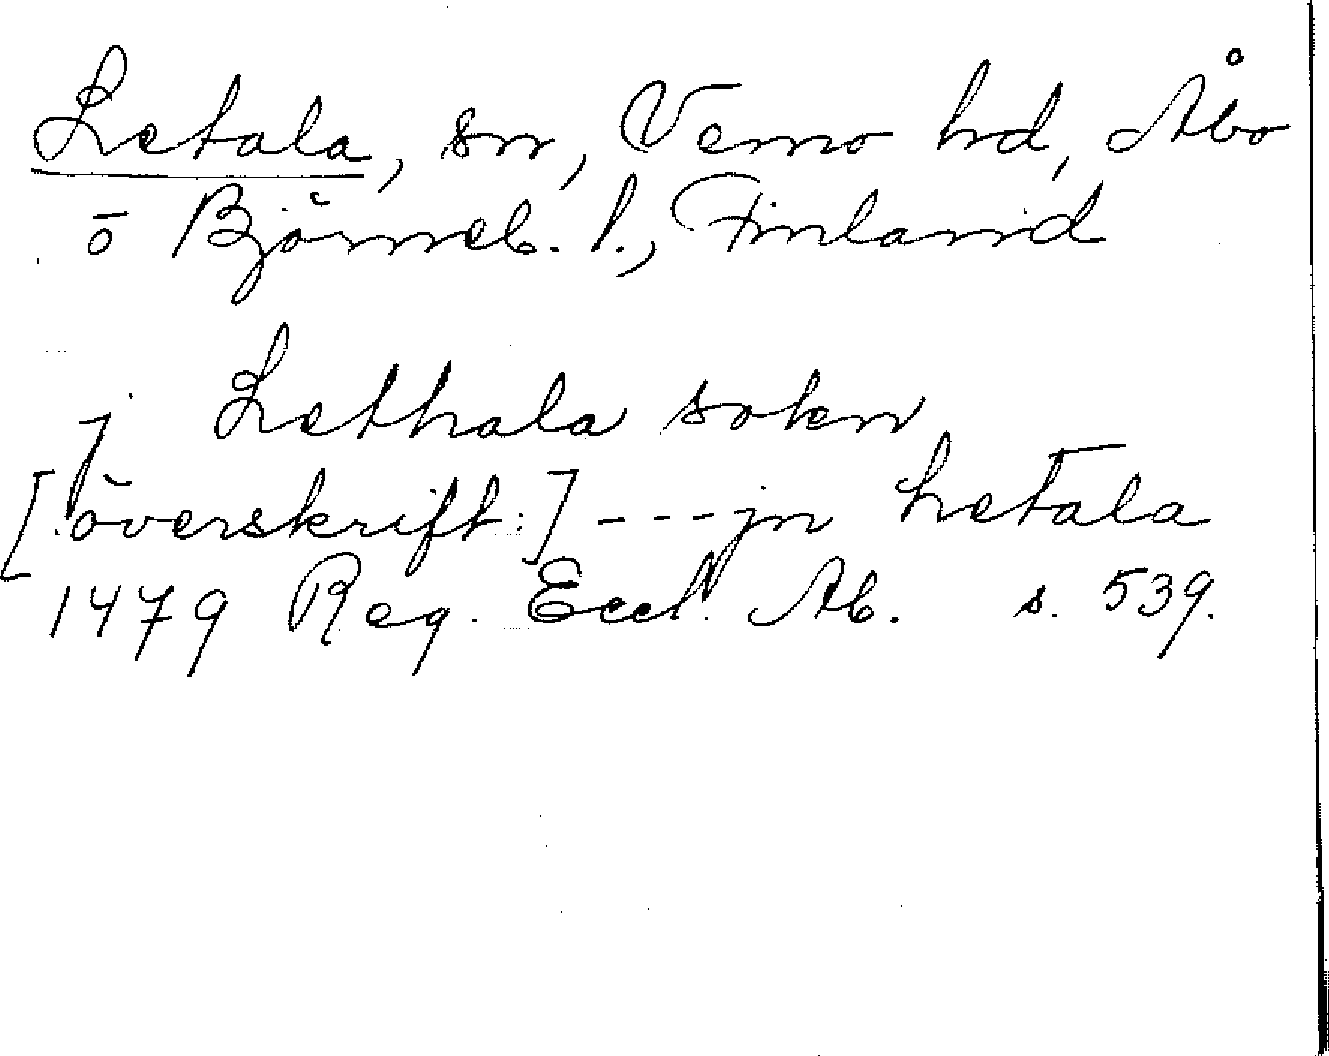 Letala, sn, Vemo hd, Åbo
o Björneb. l., Finland
j Lethala sokn
[överskrift:] ---jn Letala
1479 Reg. Eccl. Ab. s. 539.